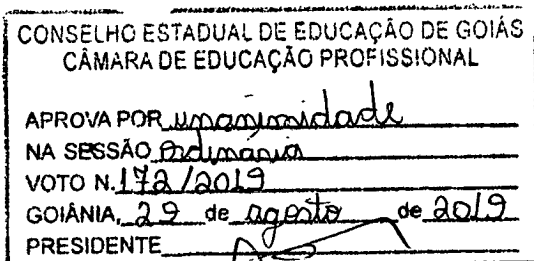 CONSELHO ESTADUAL DE EDUCAÇÃO DE GOIÁS
CÂMARA DE EDUCAÇÃO PROFISSIONAL
APROVA POR unanimidade
NA SESSÃO Ordinária
VOTO N. 172/2019
GOIÂNIA, 29 de agosto de 2019
PRESIDENTE